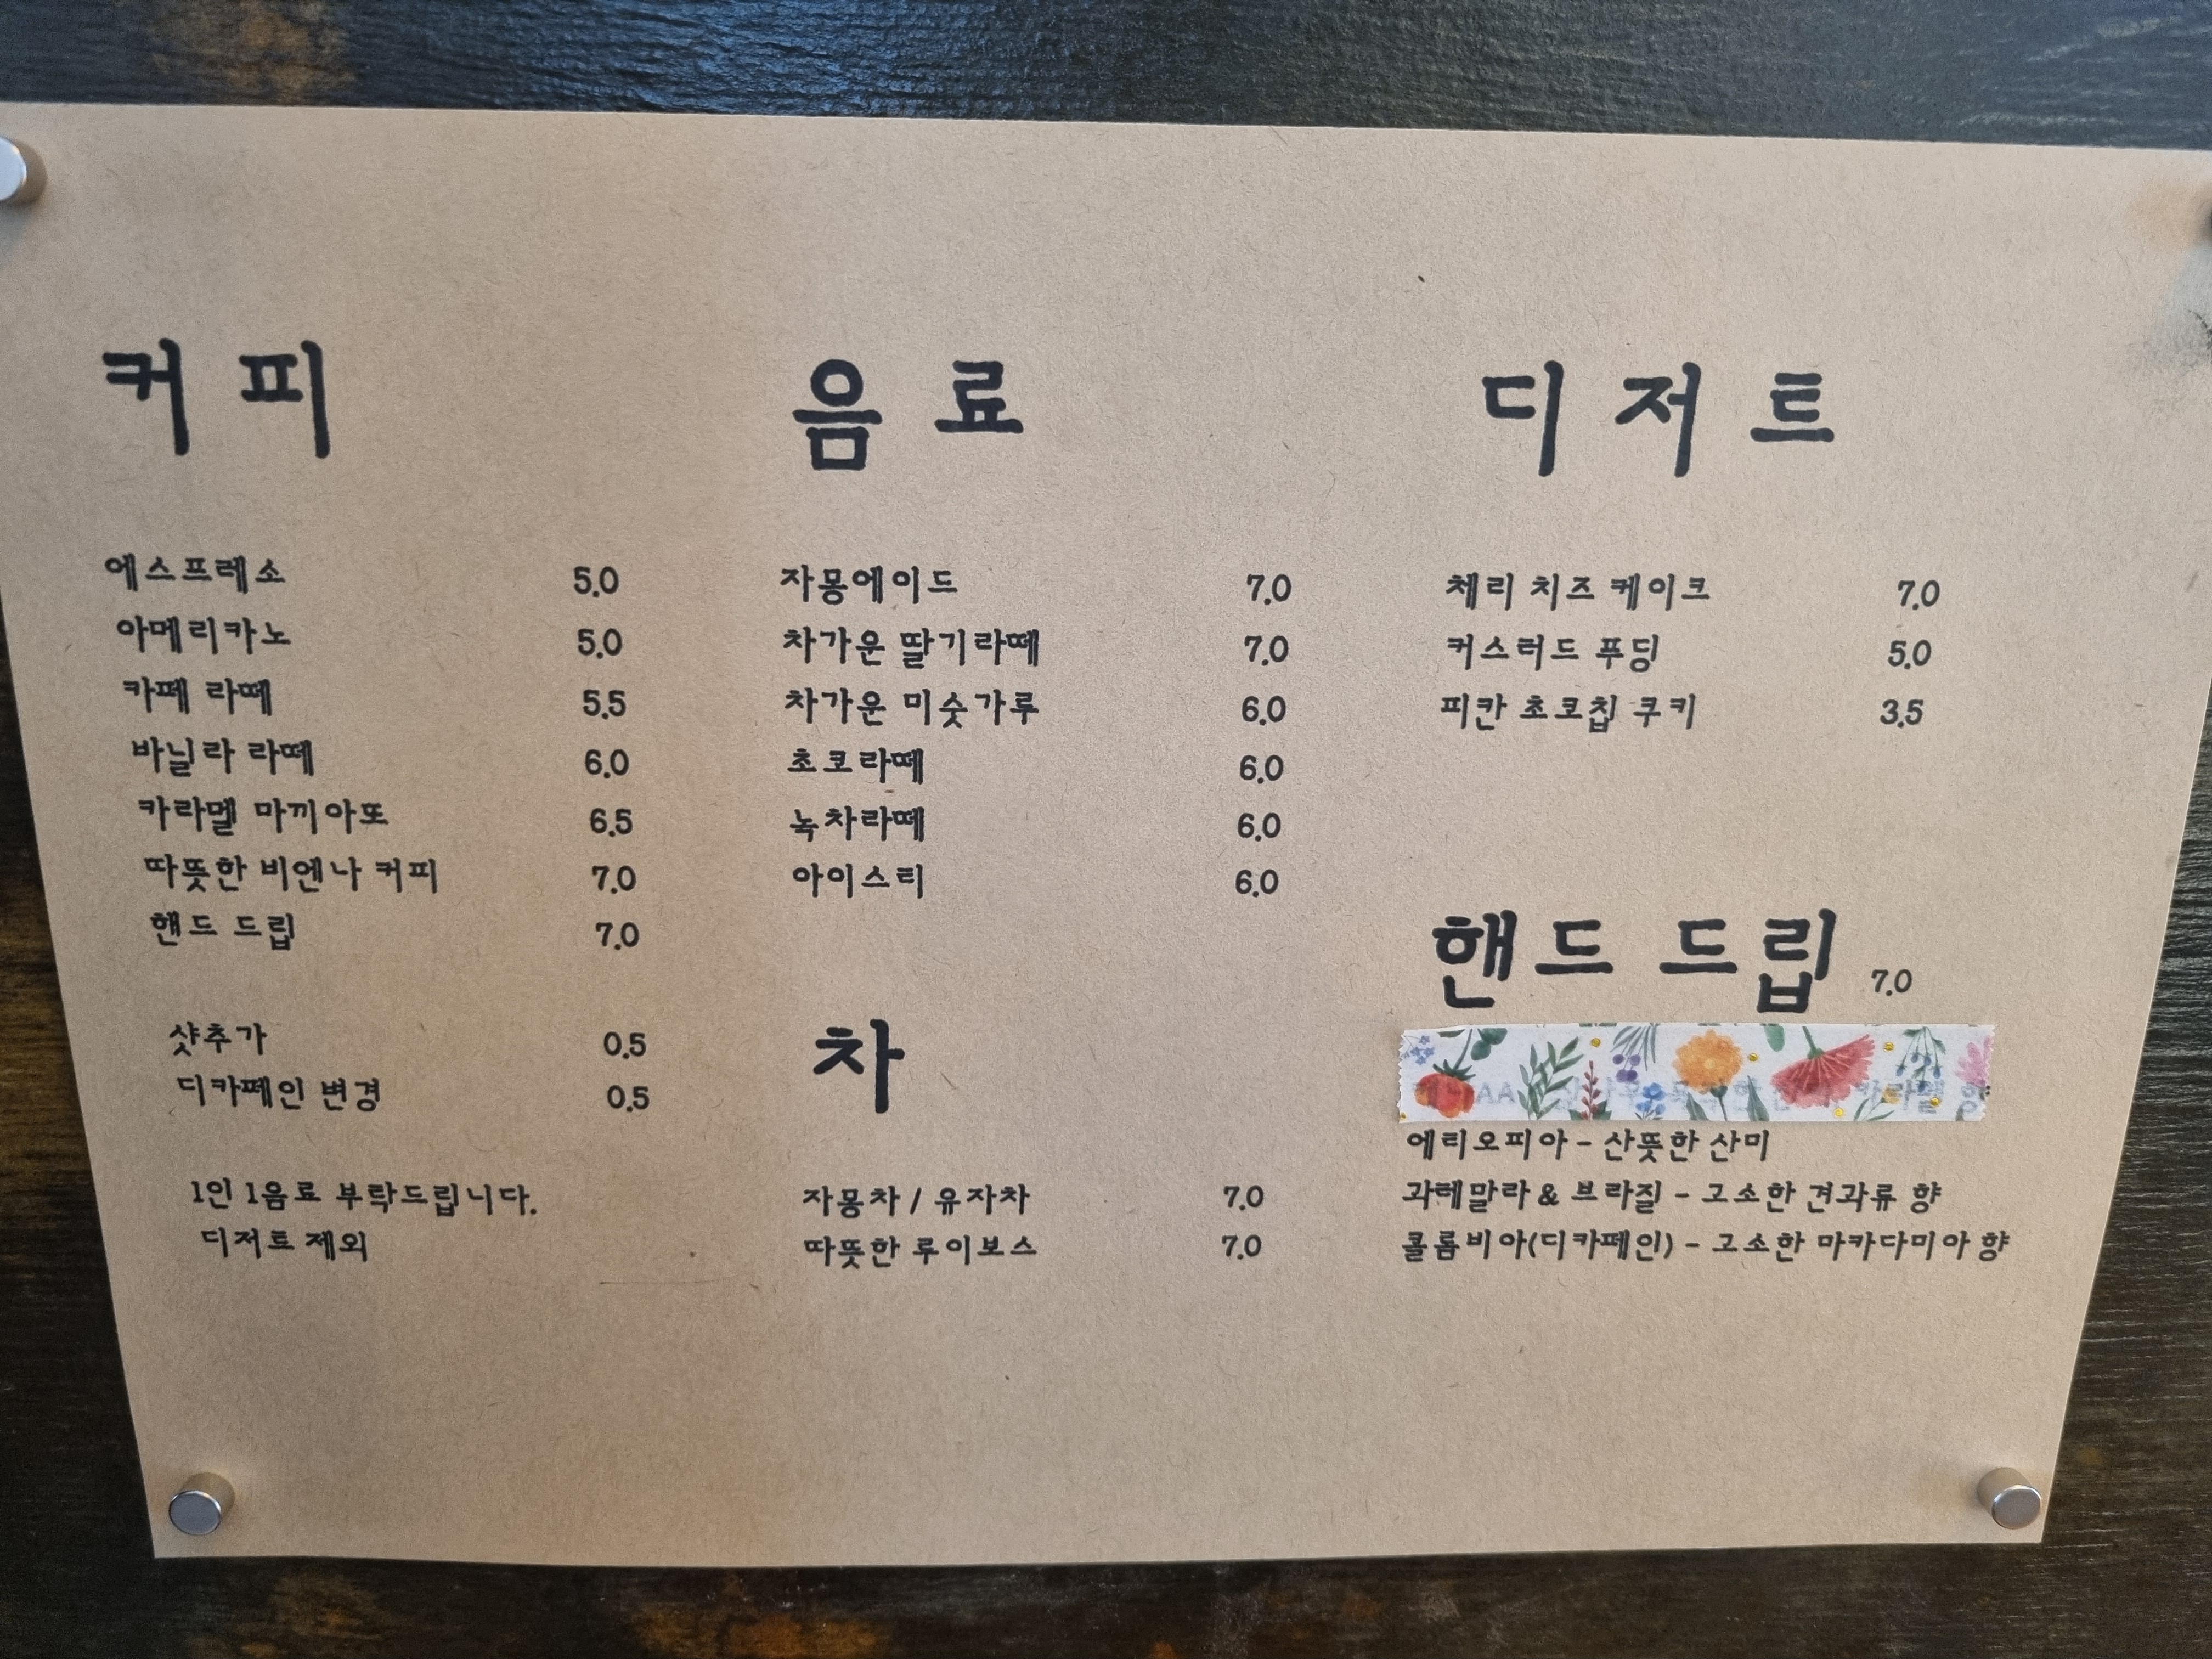 커피
에스프레소 5.0
아메리카노 5.0
카페 라떼 5.5
바닐라 라떼 6.0
카라멜 마끼아또 6.5
따뜻한 비엔나 커피 7.0
핸드 드립 7.0
샷추가 0.5
디카페인 변경 0.5
1인 1음료 부탁드립니다.
디저트 제외
음료
자몽에이드 7.0
차가운 딸기라떼 7.0
차가운 미숫가루 6.0
초코라떼 6.0
녹차라떼 6.0
아이스티 6.0
차
자몽차 / 유자차 7.0
따뜻한 루이보스 7.0
디저트
체리 치즈 케이크 7.0
커스터드 푸딩 5.0
피칸 초코칩 쿠키 3.5
핸드 드립 7.0
에티오피아 - 산뜻한 산미
과테말라 & 브라질 - 고소한 견과류 향
콜롬비아(디카페인) - 고소한 마카다미아 향